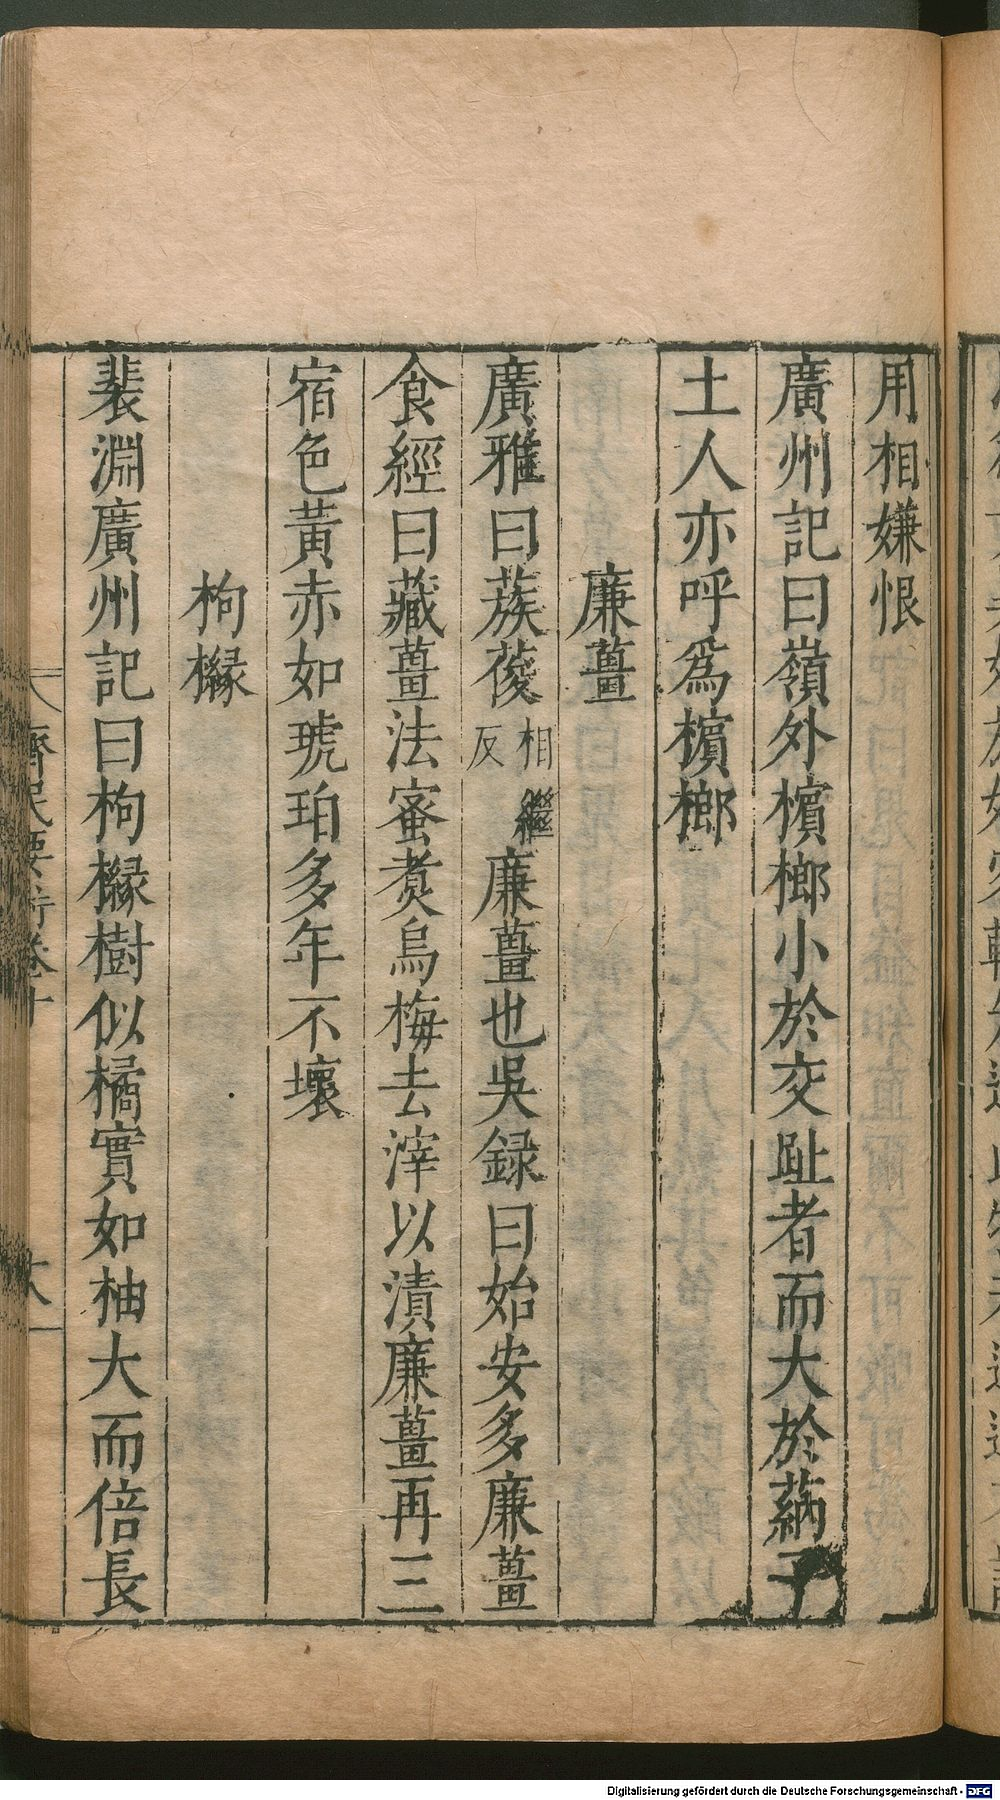 用相嫌恨
廣州記曰嶺外檳榔小於交趾者而大於蒳子
土人亦呼爲檳榔
廉薑
廣雅曰蔟葰相繼反廉薑也吳録曰始安多廉薑
食經曰藏薑法蜜煑烏梅去滓以漬廉薑再三
宿色黃赤如琥珀多年不壞
枸櫞
裴淵廣州記曰枸櫞樹似橘實如柚大而倍長
齊民要術卷十
Digitalisierung gefördert durch die Deutsche Forschungsgemeinschaft - DFG